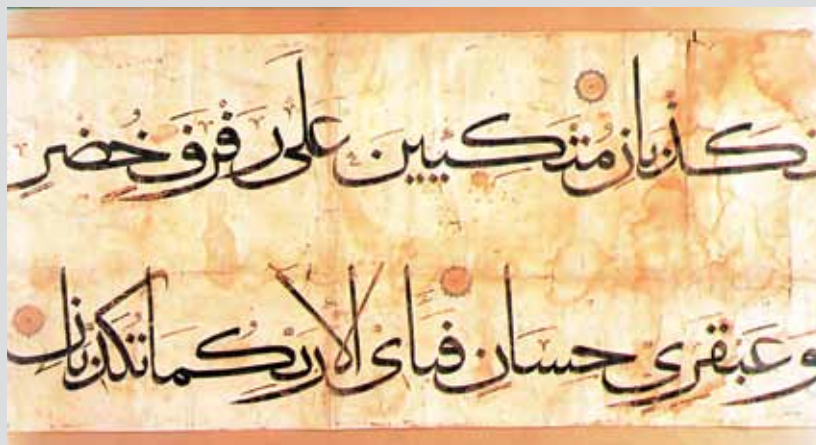 تكذبان متكيين على رفرف خضر
وعبقري حسان فباى الا ربكما تكذبان